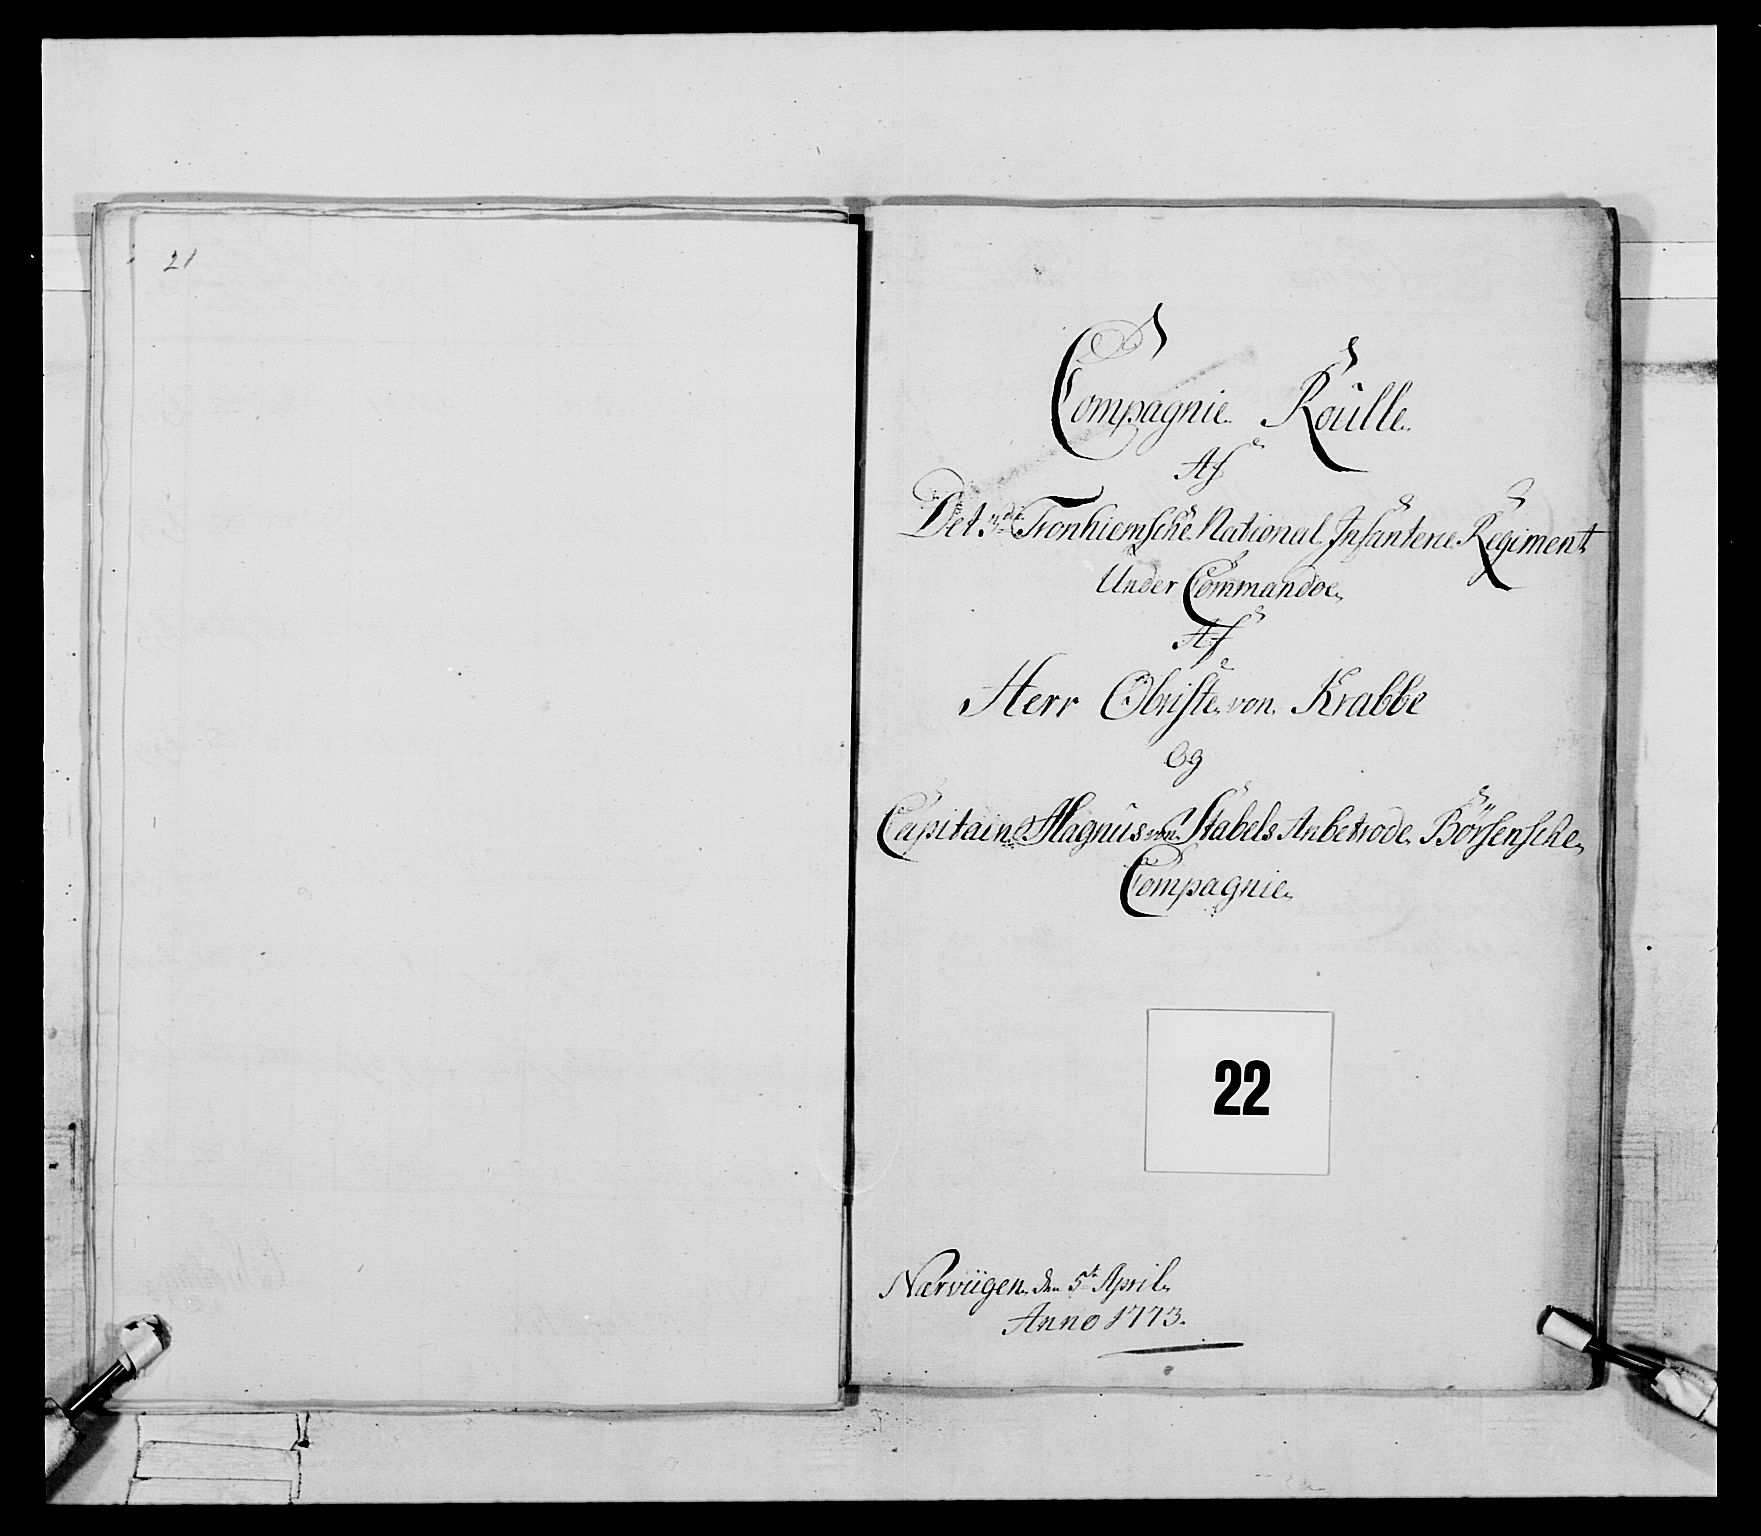 21
Compagnie Roülle
Af
Det 3de Tronhiemsche National Infanterie Regiment
Under Commandoe
Af
Herr Obriste von Krabbe
Og
Capitain Magnüs von Stabels Anbetrode Börsensche
Compagnie
22
Nærvügen den 5t April
Anno 1773.